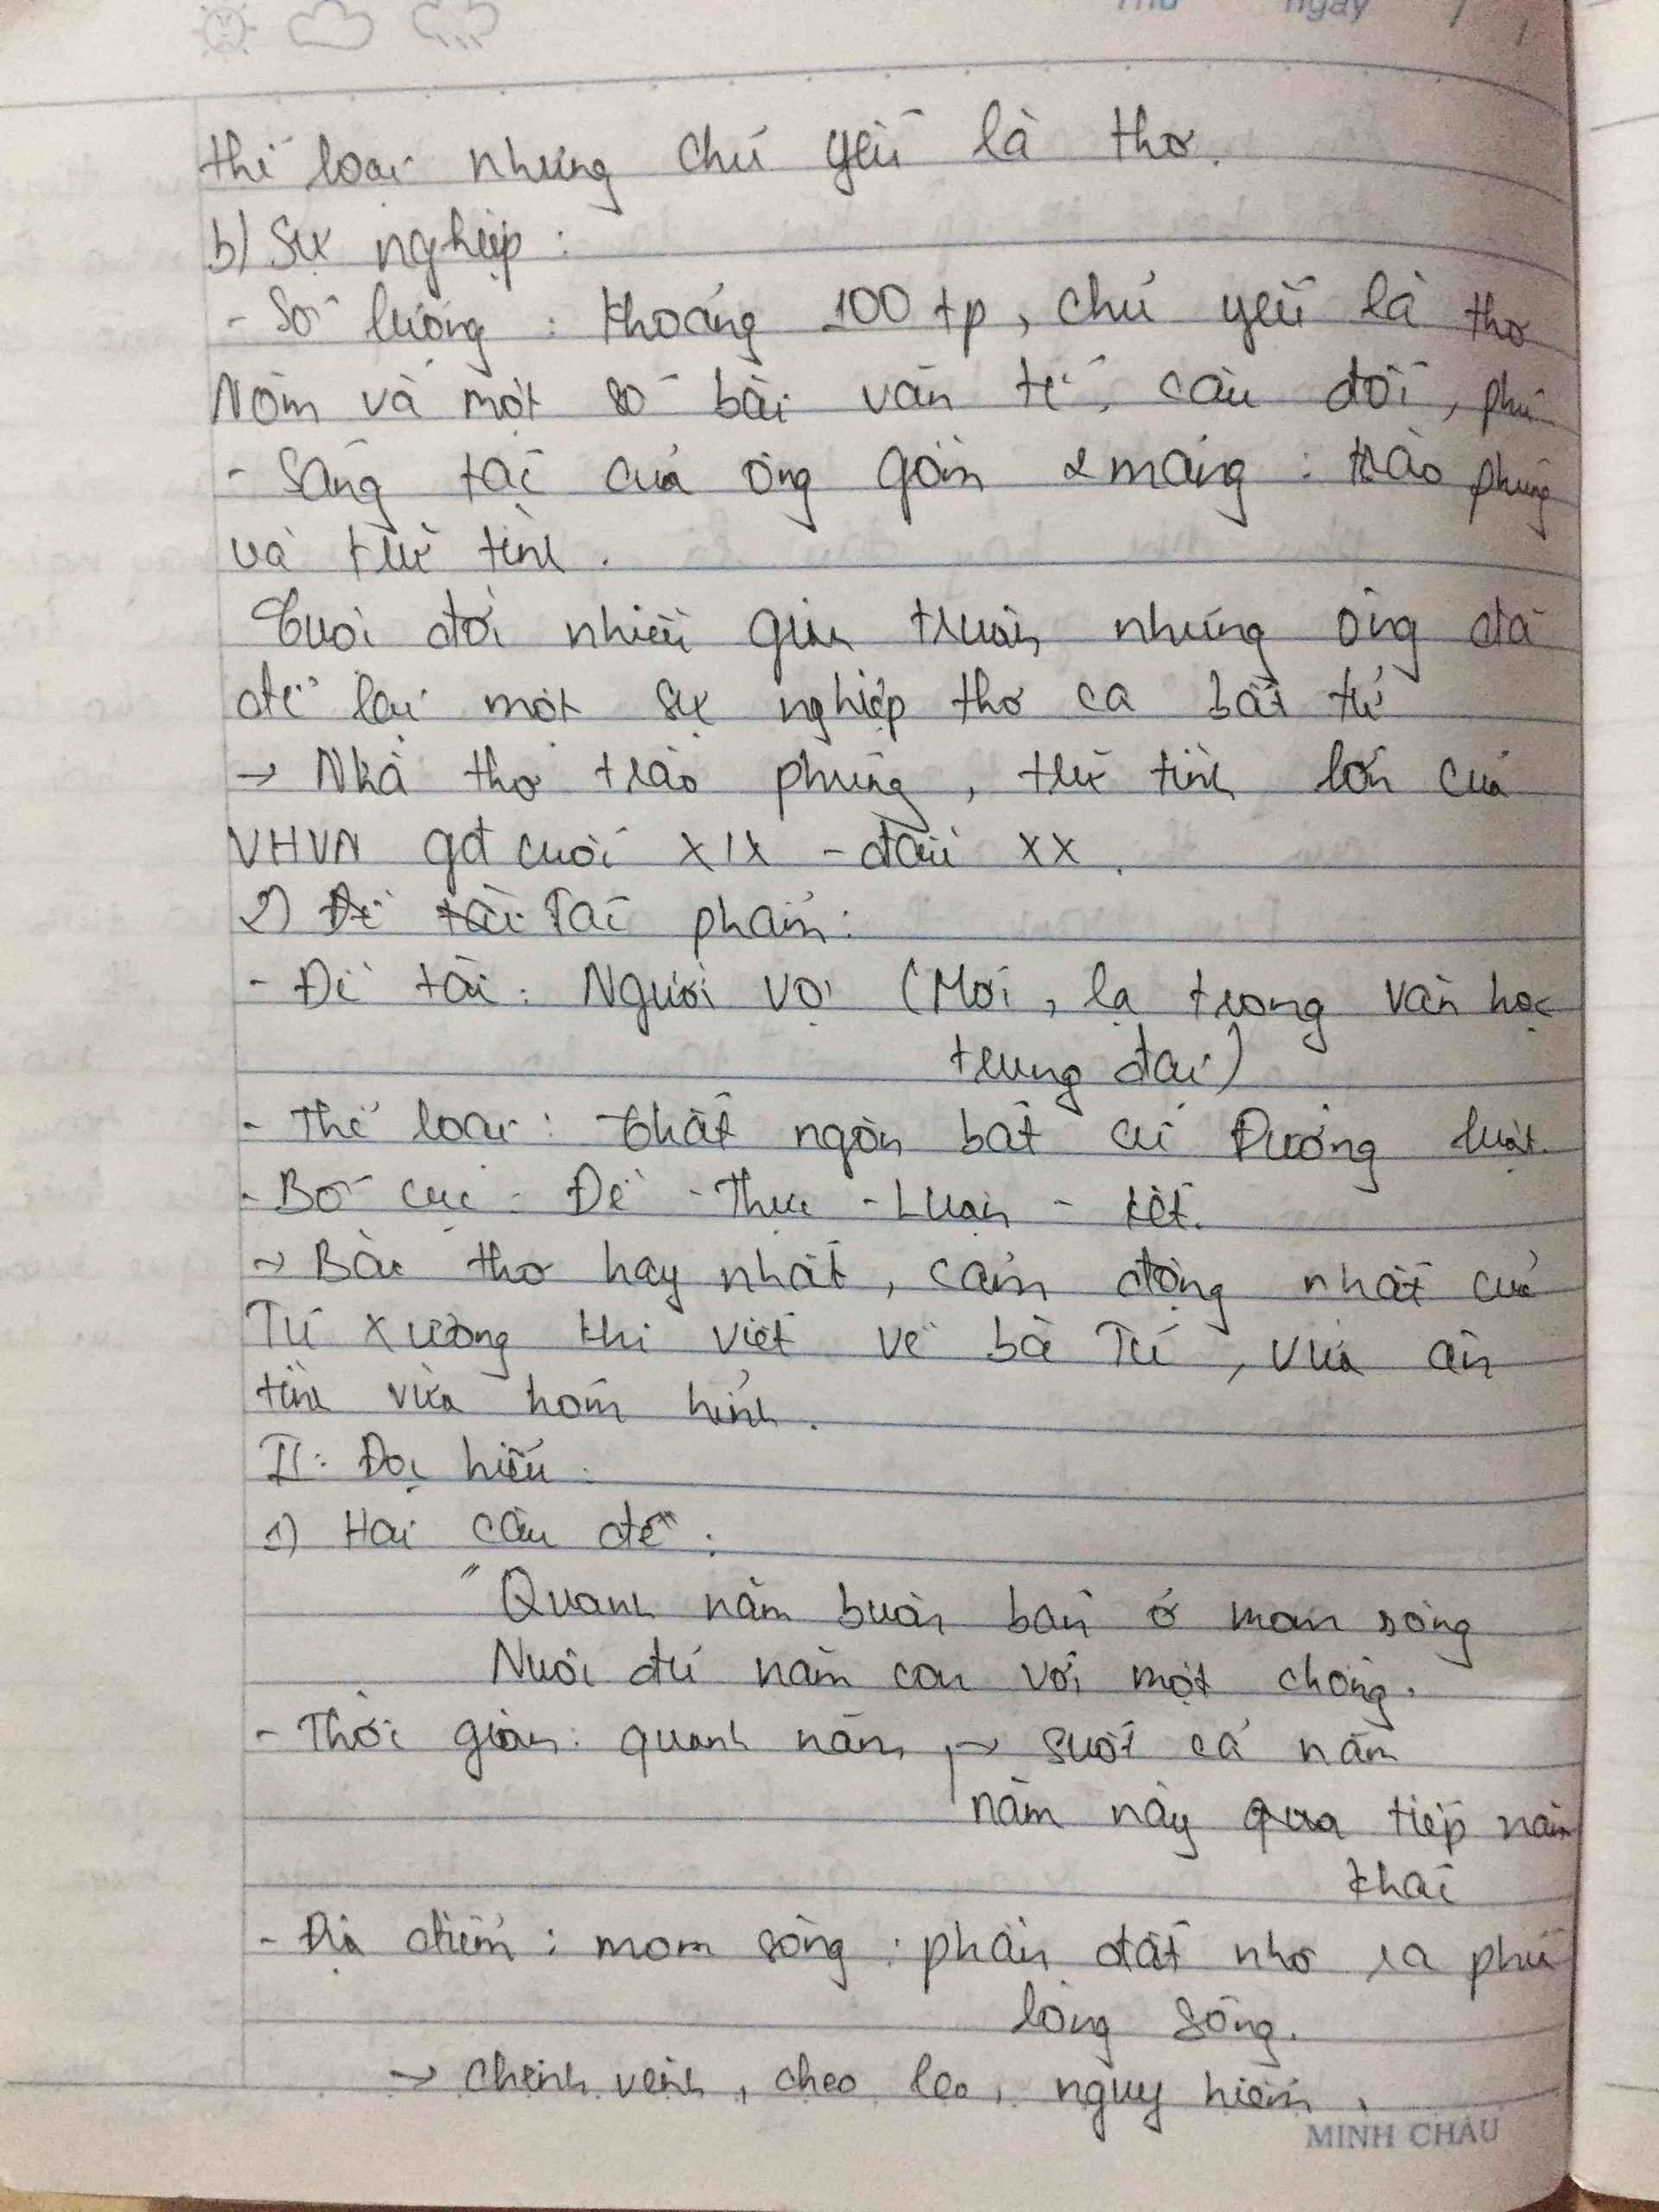 Thứ ngày / /
thể loại nhưng chủ yếu là thơ.
b) Sự nghiệp :
- Số lượng : Khoảng 100 tp, chủ yếu là thơ
Nôm và một số bài văn tế, câu đối, phú
- Sáng tác của ông gồm 2 mảng : trào phúng
và trữ tình .
Cuộc đời nhiều gian truân nhưng ông đã
để lại một sự nghiệp thơ ca bất tử
→ Nhà thơ trào phúng, trữ tình lớn của
VHVN gđ cuối XIX - đầu XX .
2) Đề tài Tác phẩm :
- Đề tài : Người vợ (Mới, lạ trong văn học
trung đại)
- Thể loại : thất ngôn bát cú Đường luật.
- Bố cục : Đề - Thực - Luận - kết.
→ Bài thơ hay nhất, cảm động nhất của
Tú Xương khi viết về bà Tú, vừa ân
tình vừa hóm hỉnh .
II : Đọc hiểu :
1) Hai câu đề :
"Quanh năm buôn bán ở mom sông
Nuôi đủ năm con với một chồng.
- Thời gian : quanh năm → suốt cả năm
năm này qua tiếp năm
khác
- Địa điểm : mom sông : phần đất nhô ra phía
lòng sông.
→ Chênh vênh, cheo leo, nguy hiểm .
MINH CHÂU